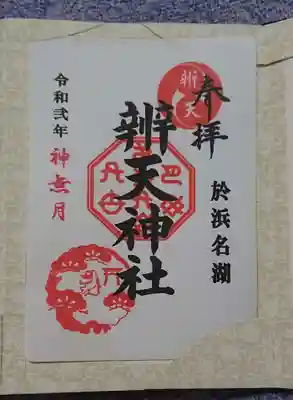 奉拝
於浜名湖
辨天
辨天神社
令和弐年
神無月